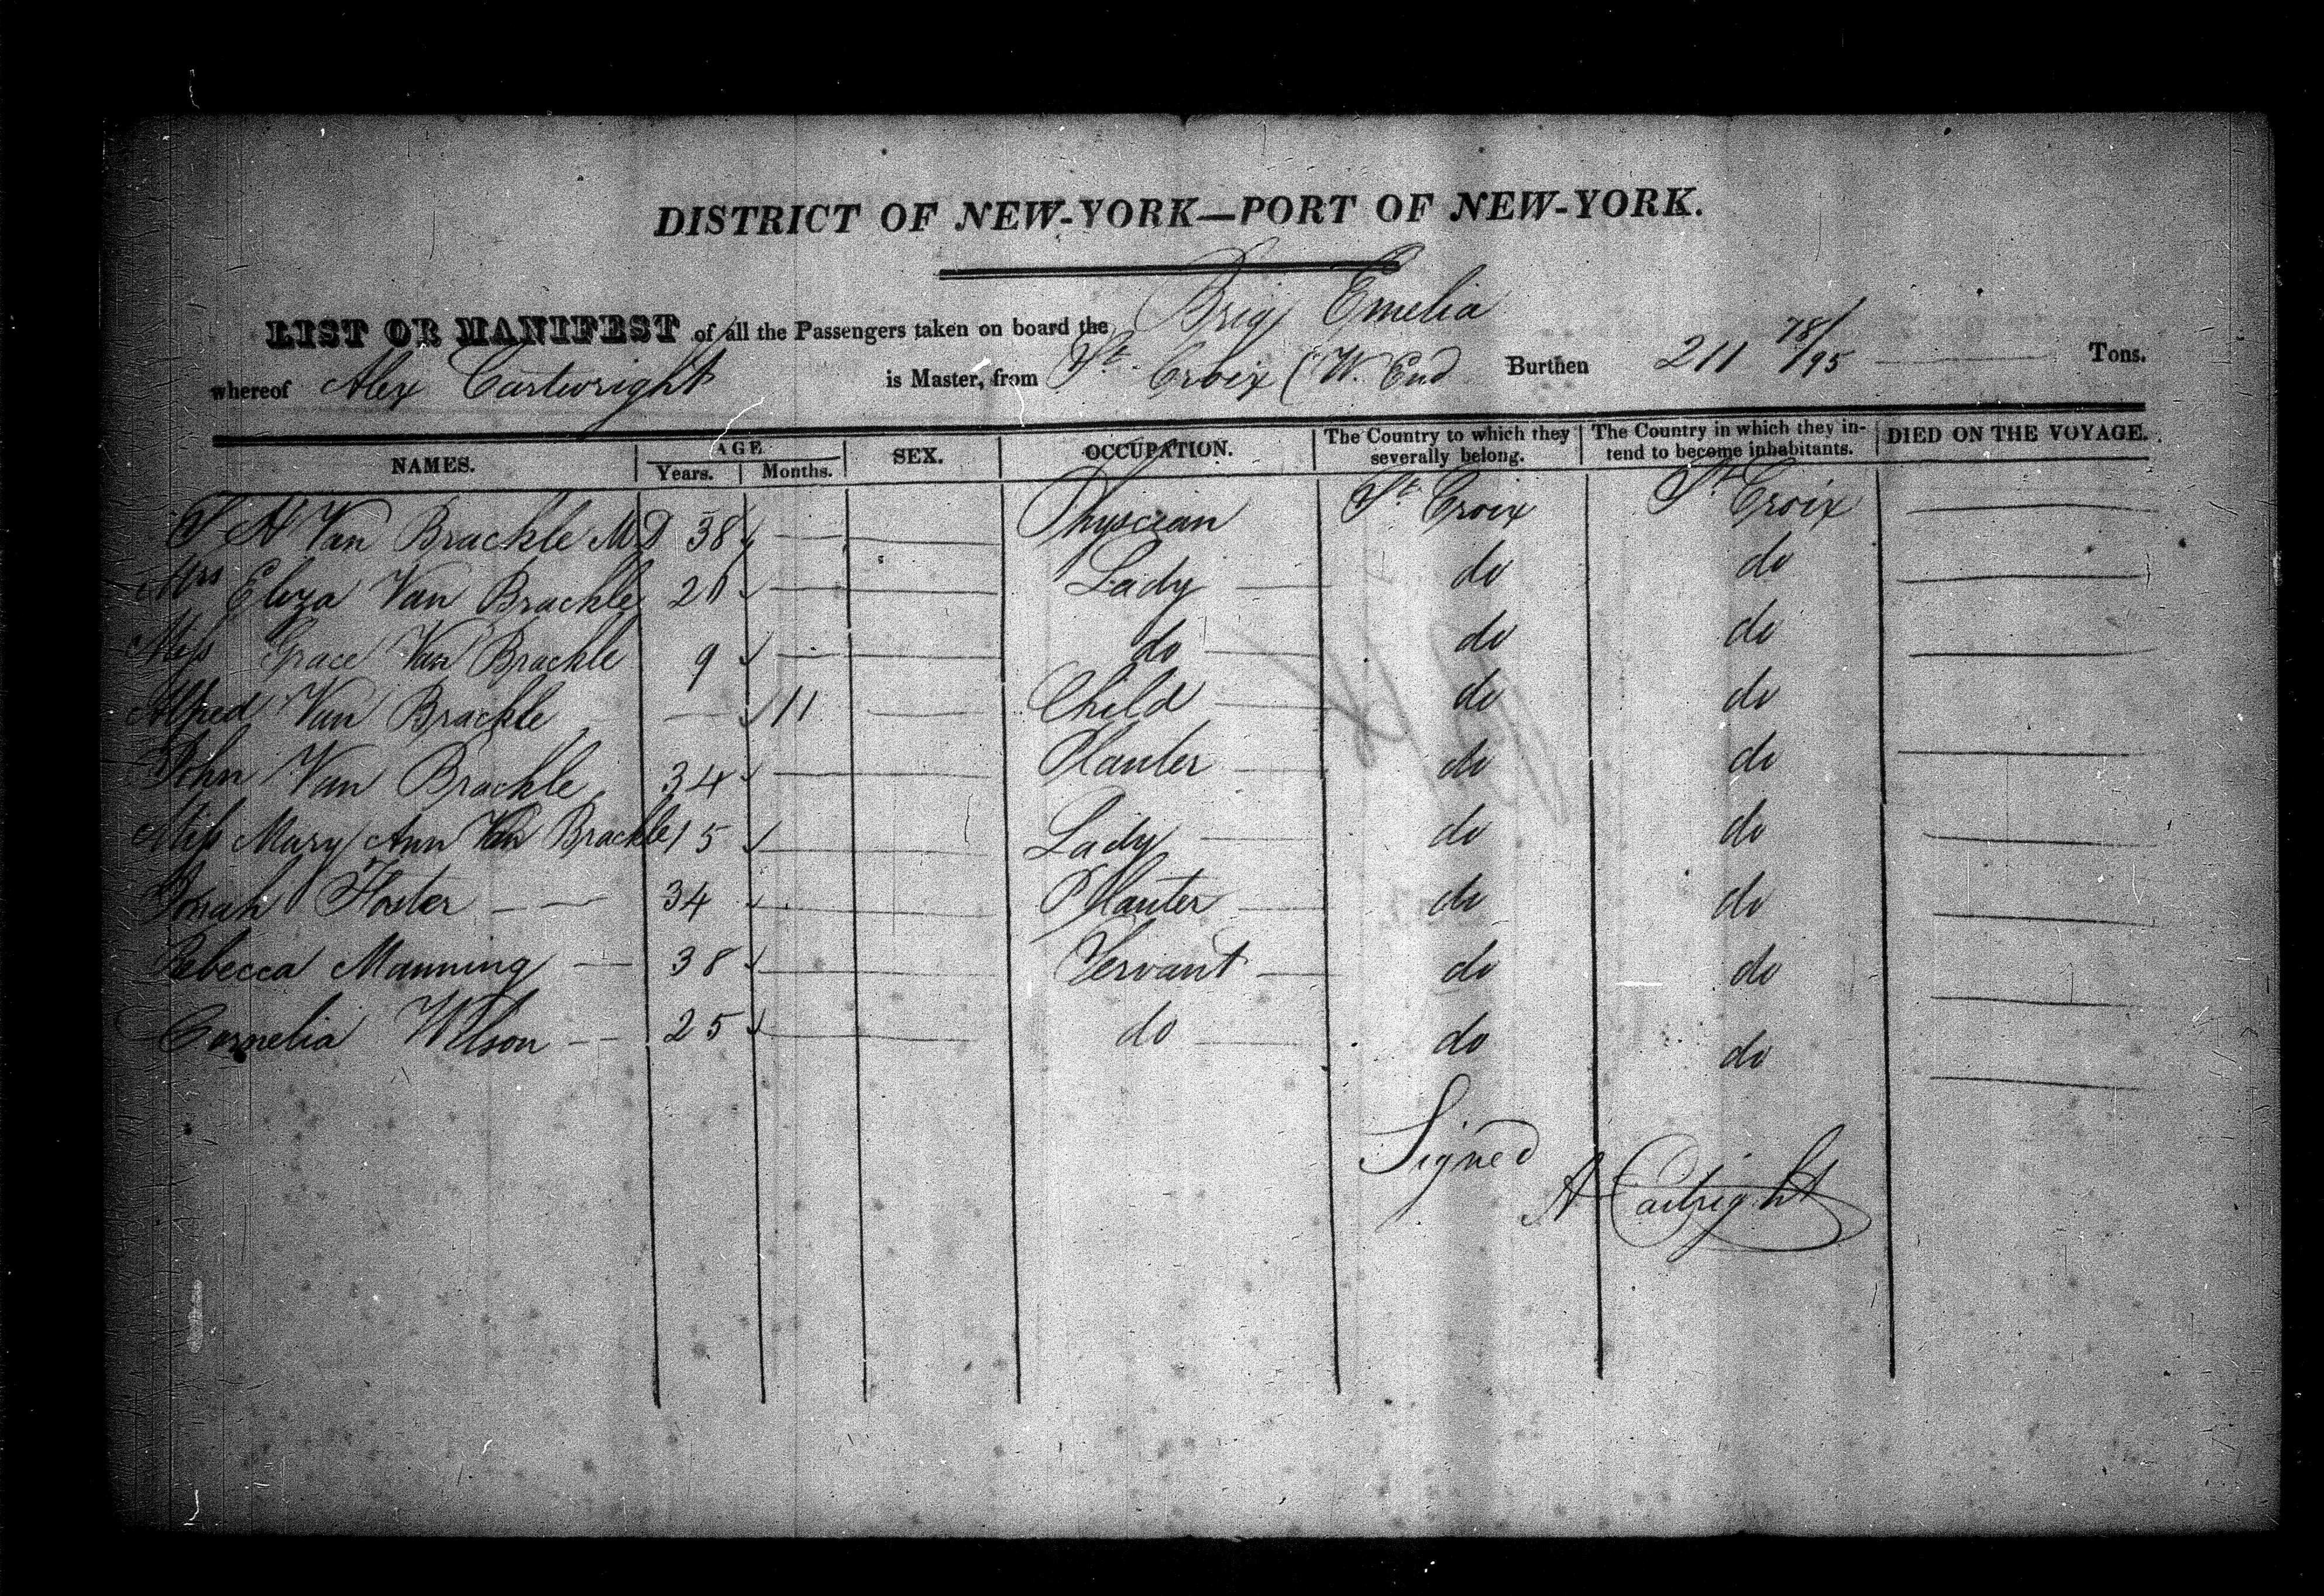 DISTRICT OF NEW-YORK—PORT OF NEW-YORK.
LIST OR MANIFEST of all the Passengers taken on board the Brig Emelia
whereof Alex Cartwright is Master, from St Croix (W. End Burthen 211 78/95 Tons.
NAMES. AGE Years. Months. SEX. OCCUPATION. The Country to which they severally belong. The Country in which they intend to become inhabitants. DIED ON THE VOYAGE.
Van Brackle MD 38 Physician St Croix St Croix
Mrs Eliza Van Brackle Lady do do
Miss Grace Van Brackle 9 do do do
Alfred Van Brackle — 11 Child do do
John Van Brackle 34 Planter do do
Miss Mary Ann Van Brackle 15 Lady do do
34 Planter do do
Rebecca Manning — 38 Servant do do
Cornelia Wilson — 25 do do do
Signed
A Cartright